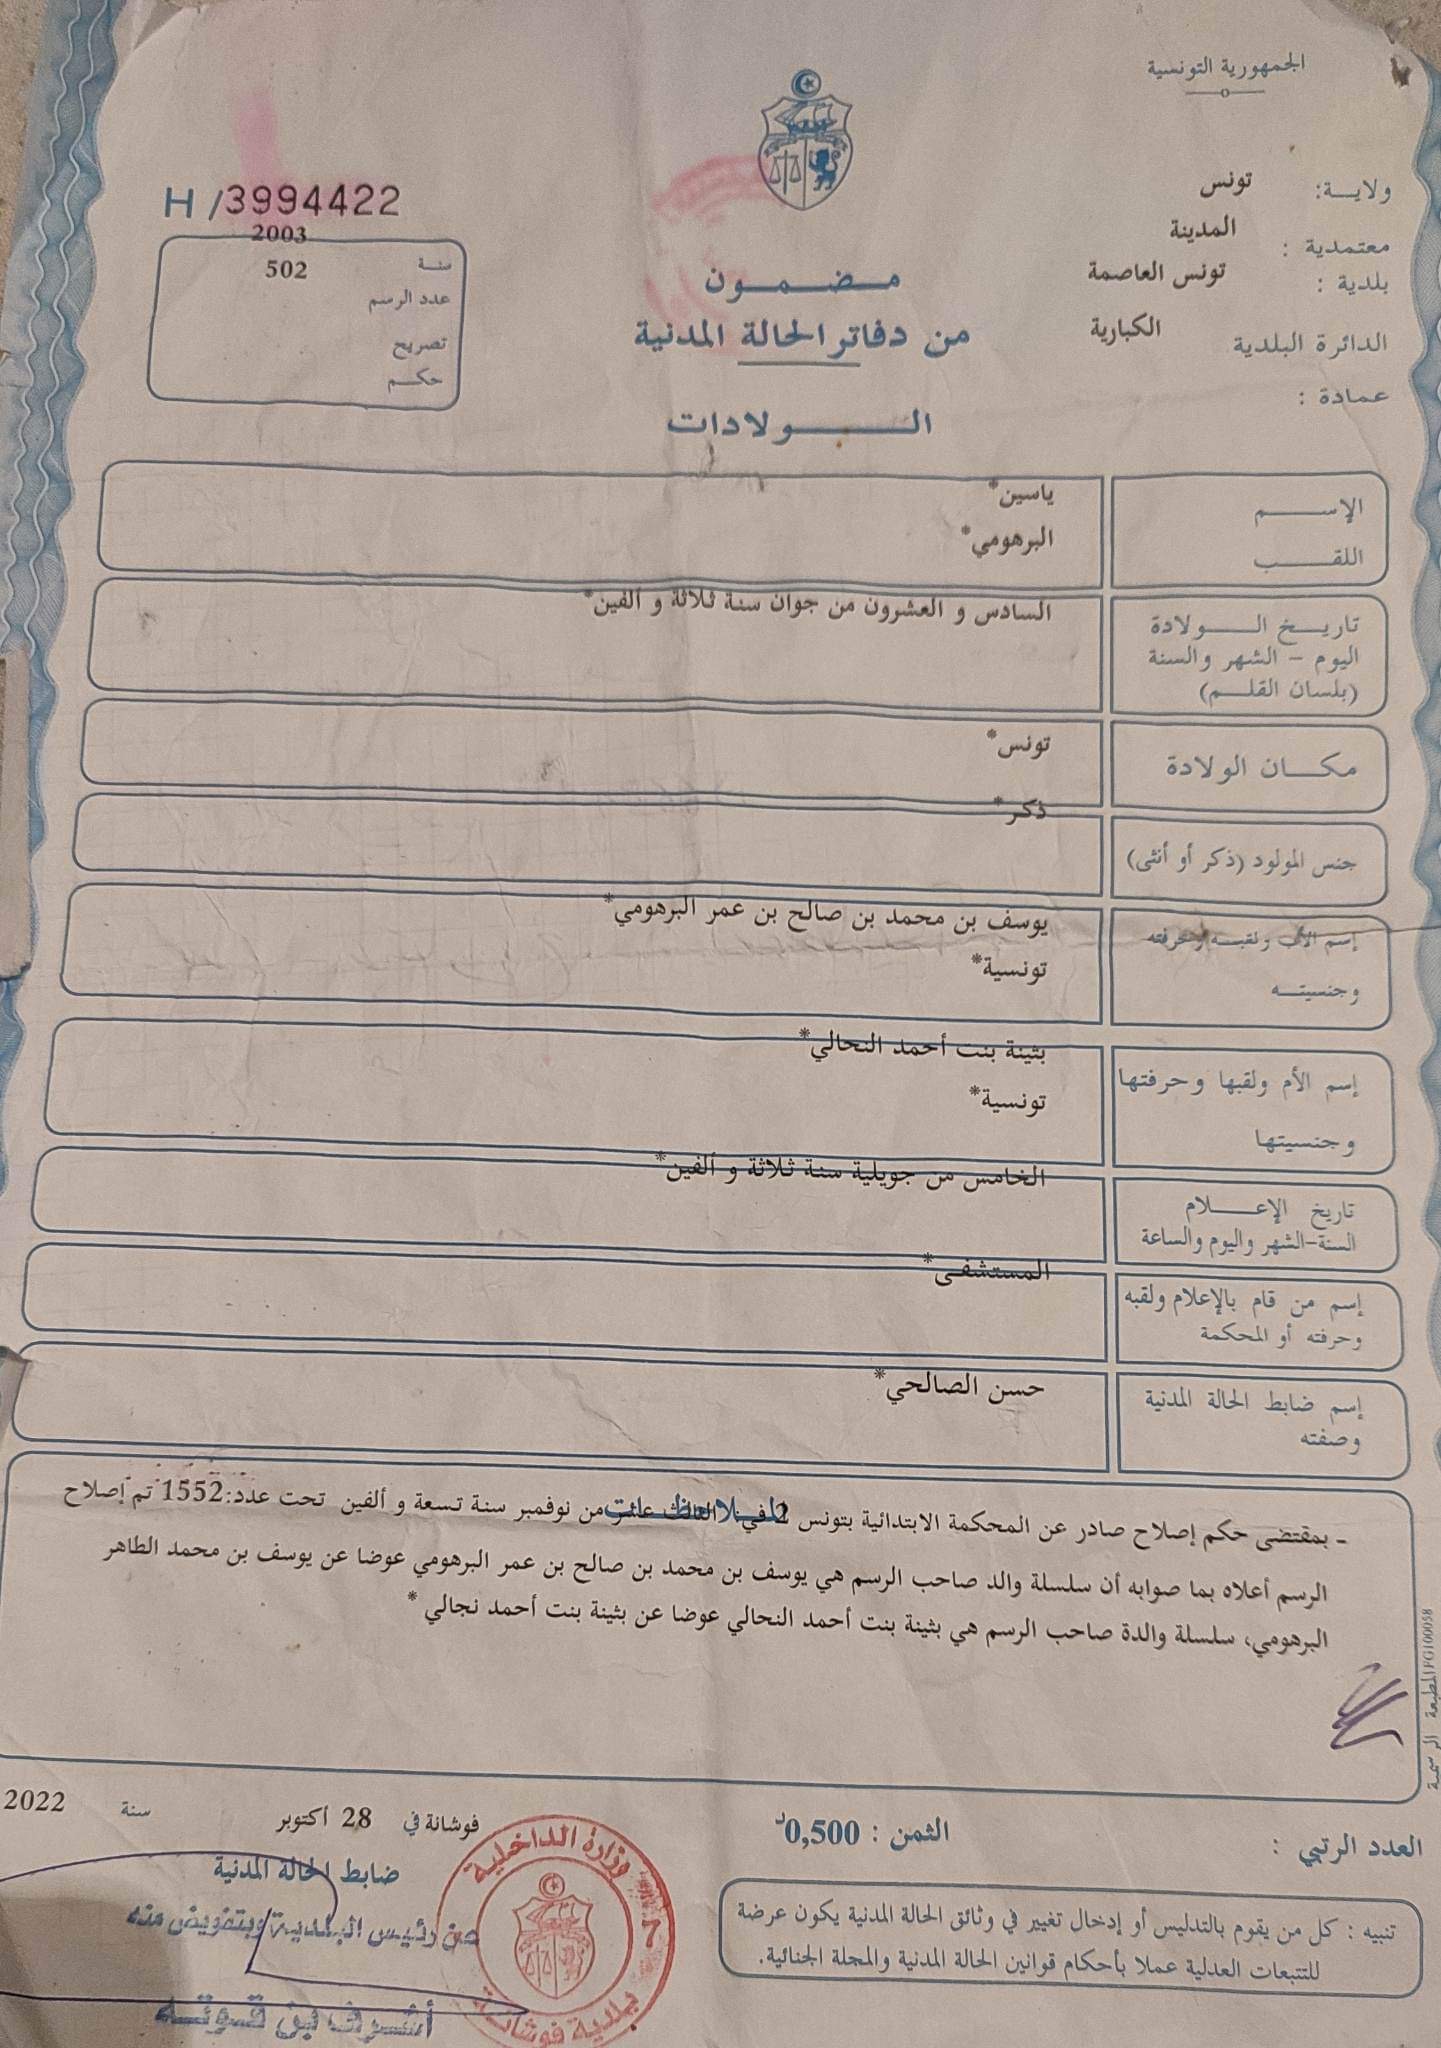 الجمهورية التونسية
ولاية: تونس
معتمدية : المدينة
بلدية : تونس العاصمة
الدائرة البلدية الكبارية
عمادة :
H /3994422
2003
سنة 502
عدد الرسم
تصريح
حكم
مضمون
من دفاتر الحالة المدنية
الولادات
الإسم ياسين*
اللقب البرهومي*
تاريخ الولادة السادس و العشرون من جوان سنة ثلاثة و ألفين*
اليوم - الشهر والسنة
(بلسان القلم)
مكان الولادة تونس*
جنس المولود (ذكر أو أنثى) ذكر*
إسم الأب ولقبه وحرفته يوسف بن محمد بن صالح بن عمر البرهومي*
وجنسيته تونسية*
إسم الأم ولقبها وحرفتها بثينة بنت أحمد النحالي*
وجنسيتها تونسية*
تاريخ الإعلام الخامس من جويلية سنة ثلاثة و ألفين*
السنة-الشهر واليوم والساعة
إسم من قام بالإعلام ولقبه المستشفى*
وحرفته أو المحكمة
إسم ضابط الحالة المدنية حسن الصالحي*
وصفته
الملاحظات
- بمقتضى حكم إصلاح صادر عن المحكمة الابتدائية بتونس 2 في الثالث عشر من نوفمبر سنة تسعة و ألفين تحت عدد:1552 تم إصلاح
الرسم أعلاه بما صوابه أن سلسلة والد صاحب الرسم هي يوسف بن محمد بن صالح بن عمر البرهومي عوضا عن يوسف بن محمد الطاهر
البرهومي، سلسلة والدة صاحب الرسم هي بثينة بنت أحمد النحالي عوضا عن بثينة بنت أحمد نجالي *
المطبعة الرسمية FG100058
العدد الرتبي :
الثمن : 0,500د
فوشانة في 28 أكتوبر سنة 2022
ضابط الحالة المدنية
عن رئيس البلدية وبتفويض منه
أشرف بن قوتة
وزارة الداخلية
7
بلدية فوشانة
تنبيه : كل من يقوم بالتدليس أو إدخال تغيير في وثائق الحالة المدنية يكون عرضة
للتتبعات العدلية عملا بأحكام قوانين الحالة المدنية والمجلة الجنائية.